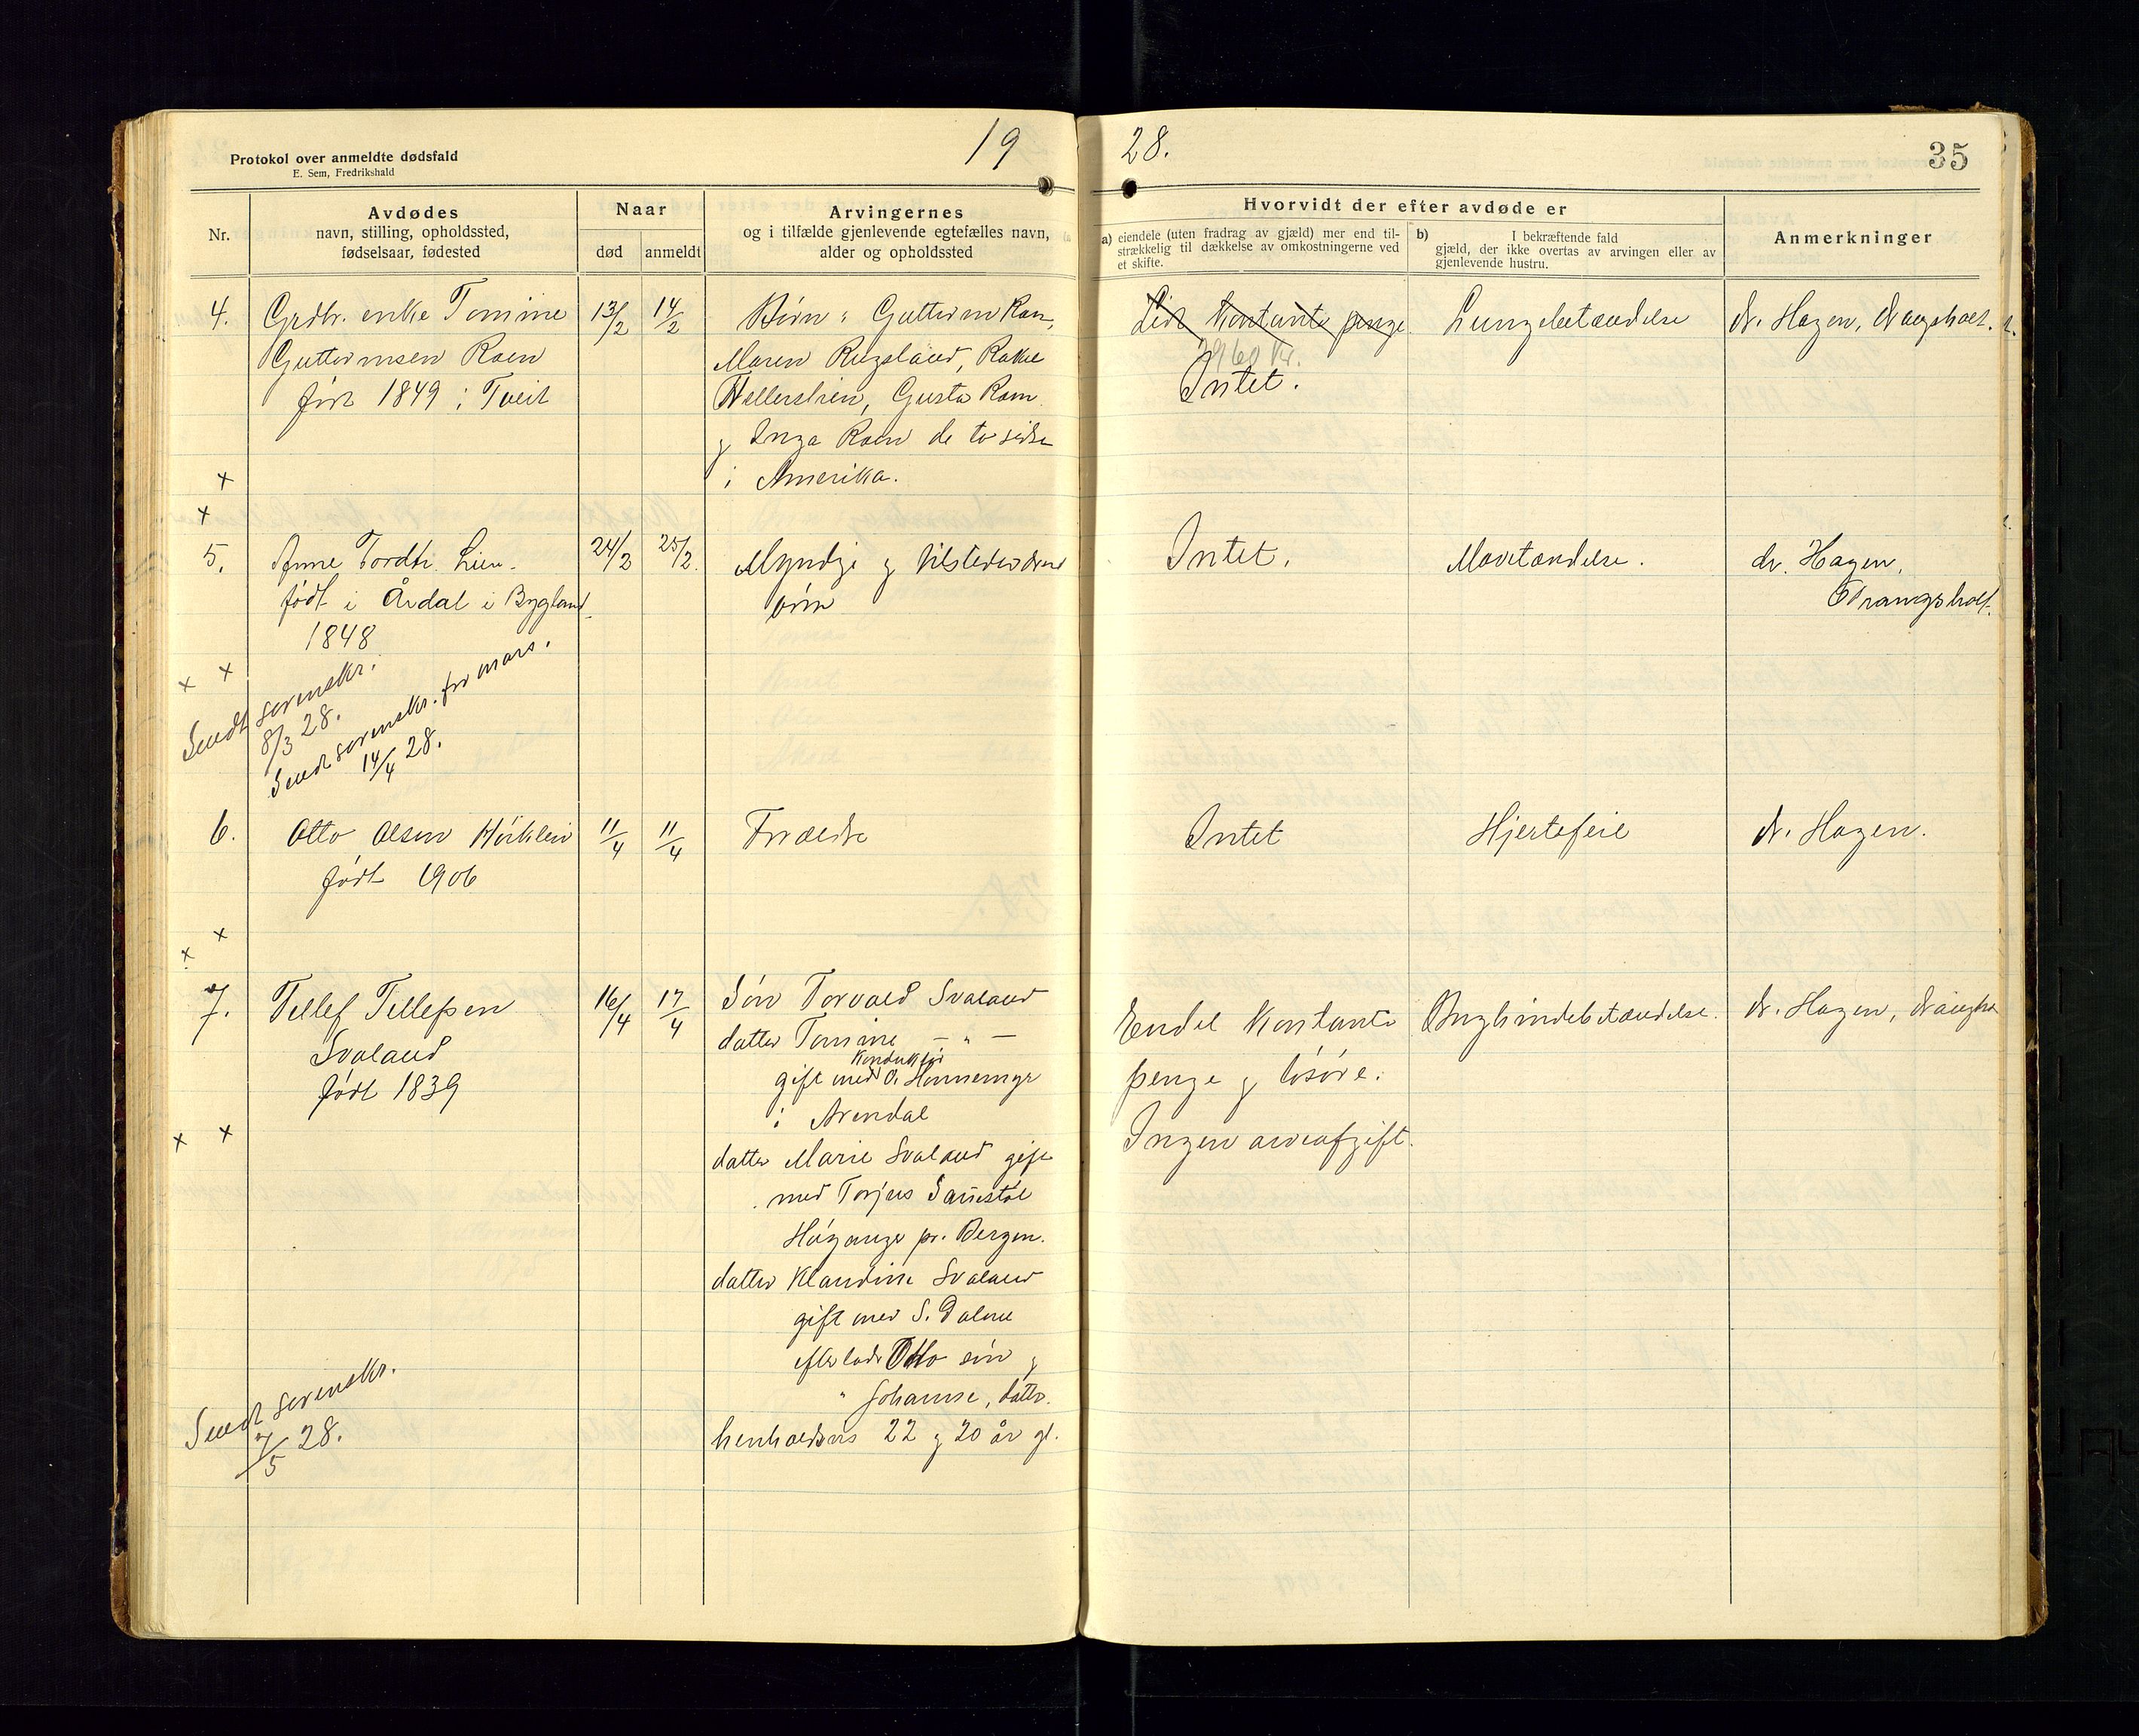 Protokol over anmeldte dødsfald
E. Sem, Fredrikshald
19
28.
35
Nr.
Avdødes
navn, stilling, opholdssted,
fødselsaar, fødested
Naar
død
anmeldt
Arvingernes
og i tilfælde gjenlevende egtefælles navn,
alder og opholdssted
Hvorvidt der efter avdøde er
a) eiendele (uten fradrag av gjæld) mer end til-
strækkelig til dækkelse av omkostningerne ved
et skifte.
b) I bekræftende fald
gjæld, der ikke overtas av arvingen eller av
gjenlevende hustru.
Anmerkninger
4.
Grdbr. enke Tomine
Guttormsen Roen
født 1849 i Tveit
13/2
14/2
Børn: Guttorm Roen,
Maren Rugsland,
Gusta Roen
og Inga Roen de to sidste
i Amerika.
Lidt kontante penge.
Intet.
Lungebetændelse
dr. Hagen, Drangsholt.
5.
Anne Tordtr. Lien.
født i Årdal i Bygland
1848
24/2
25/2.
Myndige og tilstedeværende
Intet.
Mavetændelse.
dr. Hagen,
Drangsholt.
Sendt sorenskr.
8/3 28.
Sendt sorenskr. for mars.
14/4 28.
6.
Otto Olsen
født 1906
11/4
11/4
Forældre
Intet
Hjertefeil
dr. Hagen.
7.
Tellef Tellefsen
Svaland
født 1839
16/4
17/4
Søn Torvald Svaland
datter Tomine — " —
konduktør
gift med O. Honnemyr
i Arendal
datter Marie Svaland gift
med Torjus
Høyanger pr. Bergen.
datter Klaudine Svaland
gift med S. Dalene
efterladt Otto søn og
" Johanne, datter.
henholdsvis 22 og 20 år gl.
Endel kontante
penge og løsøre.
Ingen arveafgift.
Bryghindebetændelse.
dr. Hagen,
Sendt sorenskr.
7/5 28.